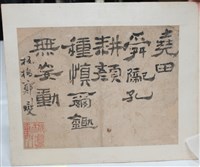 堯田
舜 孔
耕顏
種慎爾
無妄動
板橋鄭燮